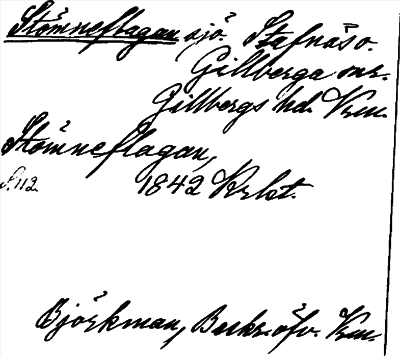 Stömneflagan sjö. Stafnäs o.
Gillberga snr.
Gillbergs hd. Vrm.
Stömneflagan,
S. 112. 1842 Vrlst.
Björkman, Beskr. öfv. Vrm.